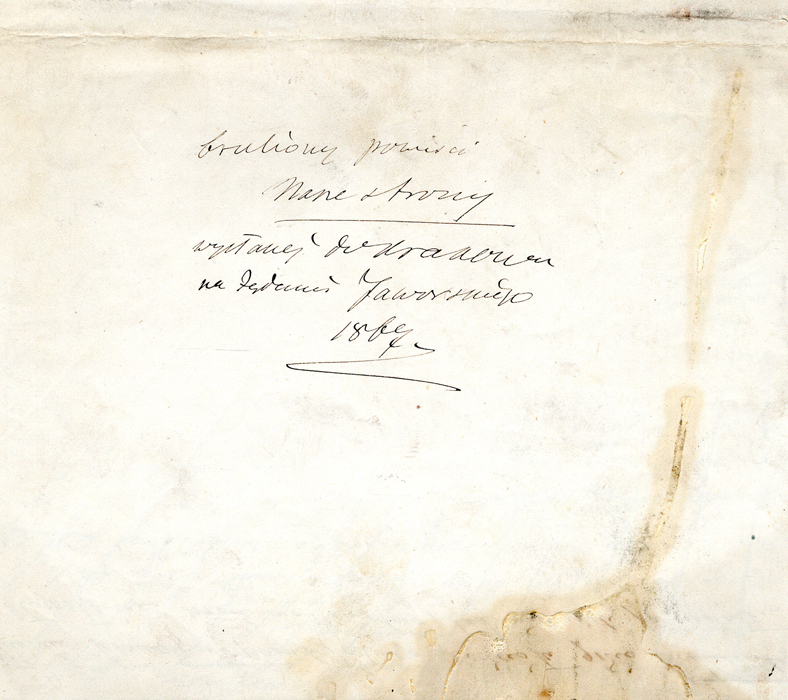 bruliony powieści
Nasze strony
wysłanej do Krakowa
na żądanie Jaworskiego
1869